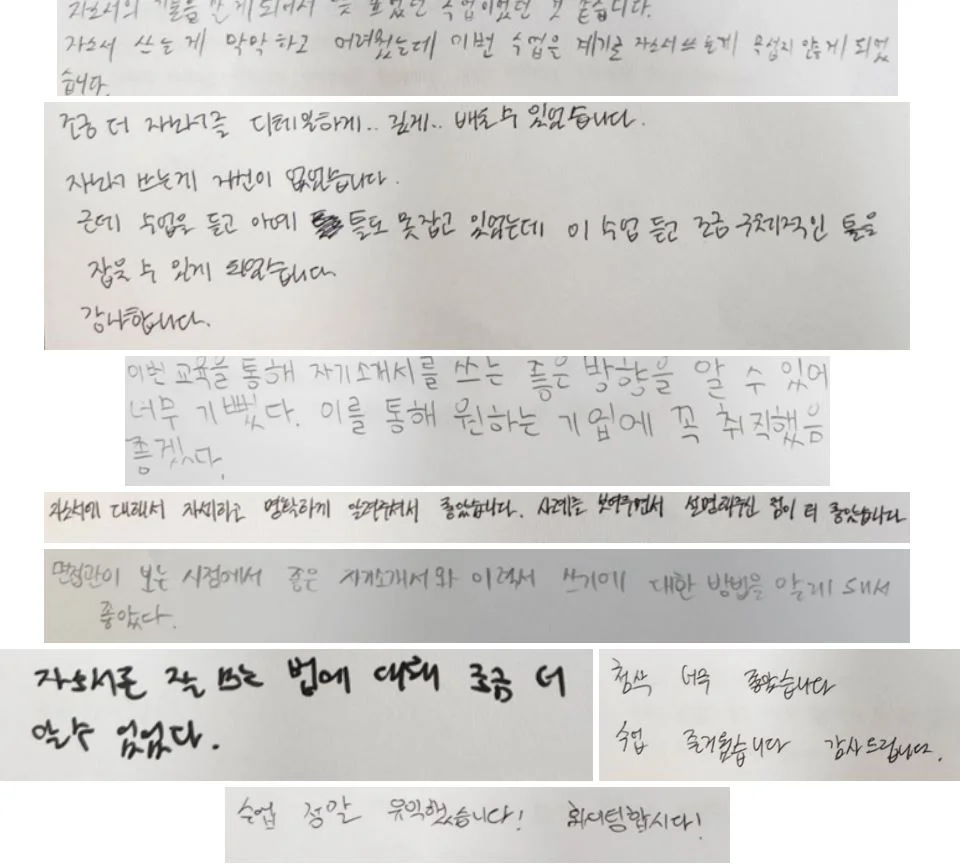 자소서의 기틀을 알게되어서 뜻 깊었던 수업이었던 것 같습니다.
자소서 쓰는게 막막하고 어려웠는데 이번 수업을 계기로 자소서 쓰는게 무섭지 않게 되었
습니다.
조금 더 자소서를 디테일하게.. 깊게.. 배울 수 있었습니다.
자소서 쓰는게 개념이 없었습니다.
근데 수업을 듣고 아예 틀도 못잡고 있었는데 이 수업 듣고 조금 구체적인 틀을
잡을 수 있게 되었습니다.
감사합니다.
이번 교육을 통해 자기소개서를 쓰는 좋은 방향을 알 수 있어
너무 기뻤다. 이를 통해 원하는 기업에 꼭 취직했음
좋겠다.
자소서에 대해서 자세하고 명확하게 알려주셔서 좋았습니다. 사례를 보여주면서 설명해주신 점이 더 좋았습니다
면접관이 보는 시점에서 좋은 자기소개서와 이력서 쓰기에 대한 방법을 알게 되서
좋았다.
자소서를 잘 쓰는 법에 대해 조금 더
알 수 있었다.
첨삭 너무 좋았습니다
수업 즐거웠습니다 감사드립니다.
수업 정말 유익했습니다! 화이팅합시다!